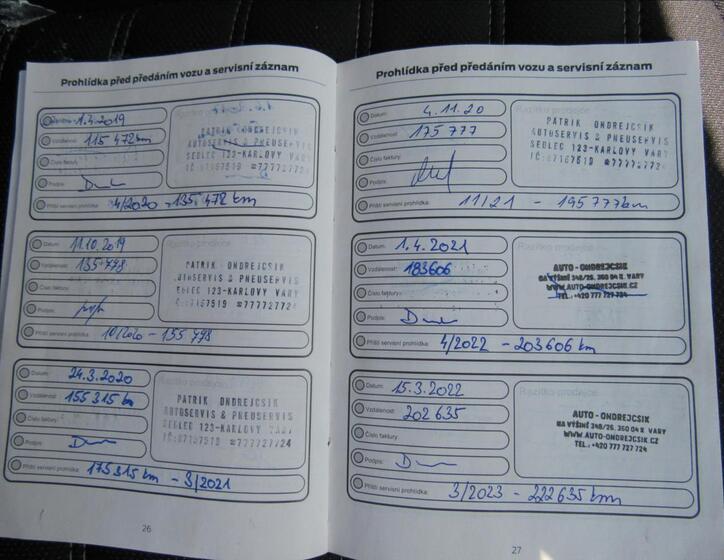 Prohlídka před předáním vozu a servisní záznam
Datum: 1.4.2019
Vzdálenost: 115 472 km
Číslo faktury:
Podpis:
Příští servisní prohlídka: 4/2020 - 135 472 km
PATRIK ONDREJCSIK
AUTOSERVIS & PNEUSERVIS
SEDLEC 123-KARLOVY VARY
Datum: 11.10.2019
Vzdálenost: 135 778
Číslo faktury:
Podpis:
Příští servisní prohlídka: 10/2020 - 155 778
PATRIK ONDREJCSIK
AUTOSERVIS & PNEUSERVIS
SEDLEC 123-KARLOVY VARY
Datum: 24.3.2020
Vzdálenost: 155 315 km
Číslo faktury:
Podpis:
Příští servisní prohlídka: 175 315 km - 3/2021
Razítko prodejce
PATRIK ONDREJCSIK
AUTOSERVIS & PNEUSERVIS
SEDLEC 123-KARLOVY VARY
☎777727724
26
Prohlídka před předáním vozu a servisní záznam
Datum: 4.11.20
Vzdálenost: 175 777
Číslo faktury:
Podpis:
Příští servisní prohlídka: 11/21 - 195 777 km
Razítko prodejce
PATRIK ONDREJCSIK
AUTOSERVIS & PNEUSERVIS
SEDLEC 123-KARLOVY VARY
Datum: 1.4.2021
Vzdálenost: 183606
Číslo faktury:
Podpis:
Příští servisní prohlídka: 4/2022 - 203606 km
Razítko prodejce
AUTO - ONDREJCSIK
NA VÝŠINĚ 348/26, 360 04 K. VARY
WWW.AUTO-ONDREJCSIK.CZ
TEL.: +420 777 727 724
Datum: 15.3.2022
Vzdálenost: 202 635
Číslo faktury:
Podpis:
Příští servisní prohlídka: 3/2023 - 222 635 km
Razítko prodejce
AUTO - ONDREJCSIK
NA VÝŠINĚ 348/26, 360 04 K. VARY
WWW.AUTO-ONDREJCSIK.CZ
TEL.: +420 777 727 724
27